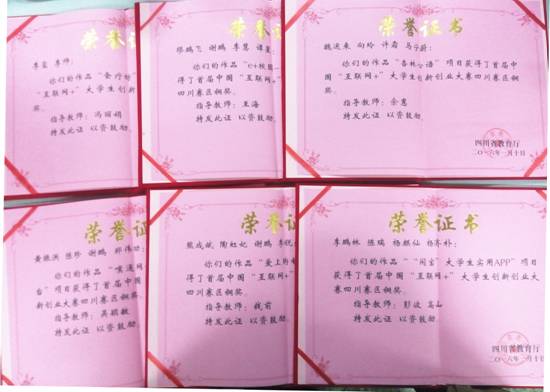 荣誉证
李 李师:
你们的作品“食疗
“互联网+”大学生创
奖。
指导教师: 冯丽娟
特发此证 以资鼓励
荣誉证书
张鹏飞 谢鹏 李慧 谭
你们的作品“e+校
得了首届中国“互联
四川赛区铜奖。
指导教师: 王海
特发此证 以资鼓励
荣誉证书
魏运来 向玲 许霜 马
你们的作品“杏林 语”项目获得了首届中
国“互联网+”大学生创新创业大赛四川赛区铜
奖。
指导教师: 余惠
特发此证 以资鼓励。
四川省教育厅
二〇一六年一月十日
荣誉证
黄 洪 陈珍 谢鹏 郑伟
你们的作品“
台”项目获得了首届中
业大赛四川赛区铜奖。
指导教师: 吴朝敏
特发此证 以资鼓励
荣誉证书
熊成斌 陶虹妃 谢鹏 李
你们的作品“爱上
得了首届中国“互联
四川赛区铜奖。
指导教师: 钱前
特发此证 以资鼓励
荣誉证书
李鹏林 陈瑞 杨麒仙 杨
你们的作品“"闻宝"大学生实用APP”项目
获得了首届中国“互联网+”大学生创新创业大
赛四川赛区铜奖。
指导教师: 彭波 高
特发此证 以资鼓励。
四川省教育厅
二〇一六年一月十日